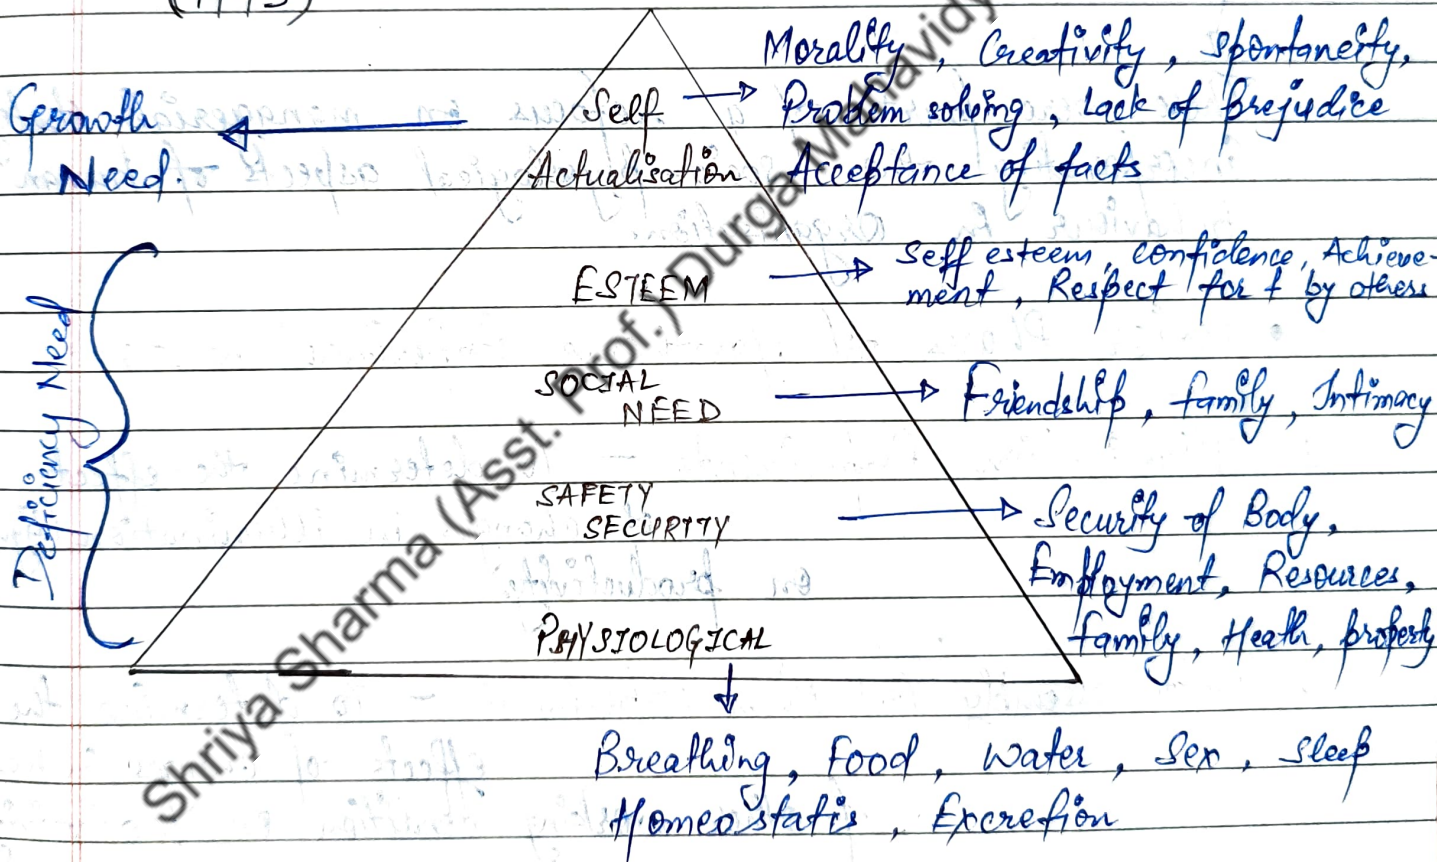 (1943)
Morality, Creativity, Spontaneity,
Growth
Need.
Self
Actualisation
Problem solving, Lack of prejudice
Acceptance of facts
Deficiency Need
ESTEEM
Self esteem, confidence, Achieve-
ment, Respect for & by others
SOCIAL
NEED
Friendship, family, Intimacy
SAFETY
SECURITY
Security of Body,
Employment, Resources,
family, Heath, property
PHYSIOLOGICAL
Breathing, Food, water, Sex, Sleep
Homeostatis, Excretion
Shriya Sharma (Asst. Prof.) Durga Mahavidy